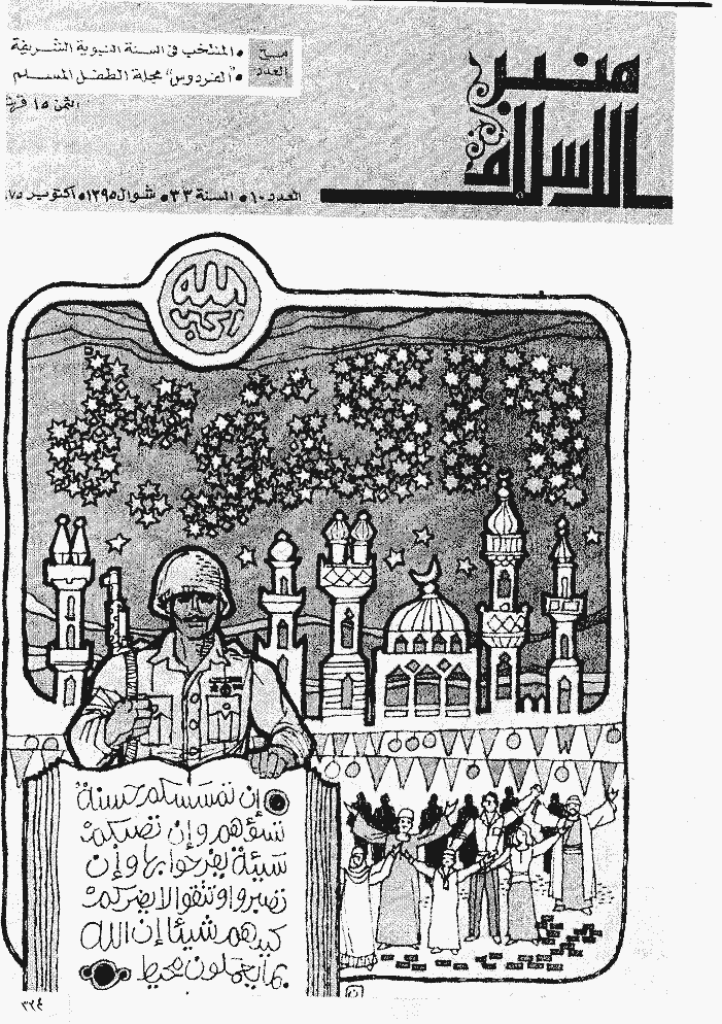 منبر
الإسلام
مع
العدد
• المنتخب في السنة النبوية الشريفة
• "الفردوس" مجلة الطفل المسلم
الثمن ١٥
العدد ١٠ • السنة ٣٣ • شوال ١٣٩٥ • اكتوبر
الله
اكبر
إن تمسسكم حسنة
تسؤهم وإن تصبكم
سيئة يفرحوا بها وإن
تصبروا وتتقوا لا يضركم
كيدهم شيئا إن الله
بما يعملون محيط
٣٢٤